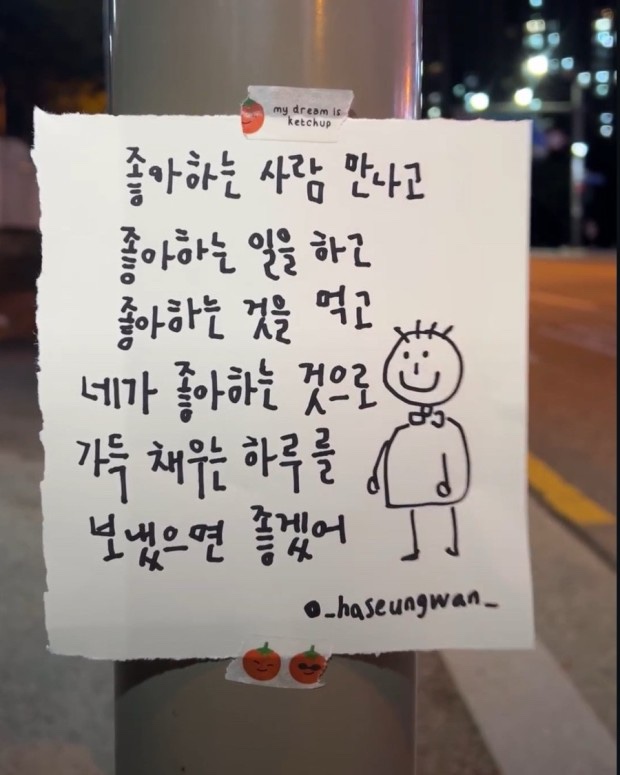 my dream is
ketchup
좋아하는 사람 만나고
좋아하는 일을 하고
좋아하는 것을 먹고
네가 좋아하는 것으로
가득 채우는 하루를
보냈으면 좋겠어
@_haseungwan_